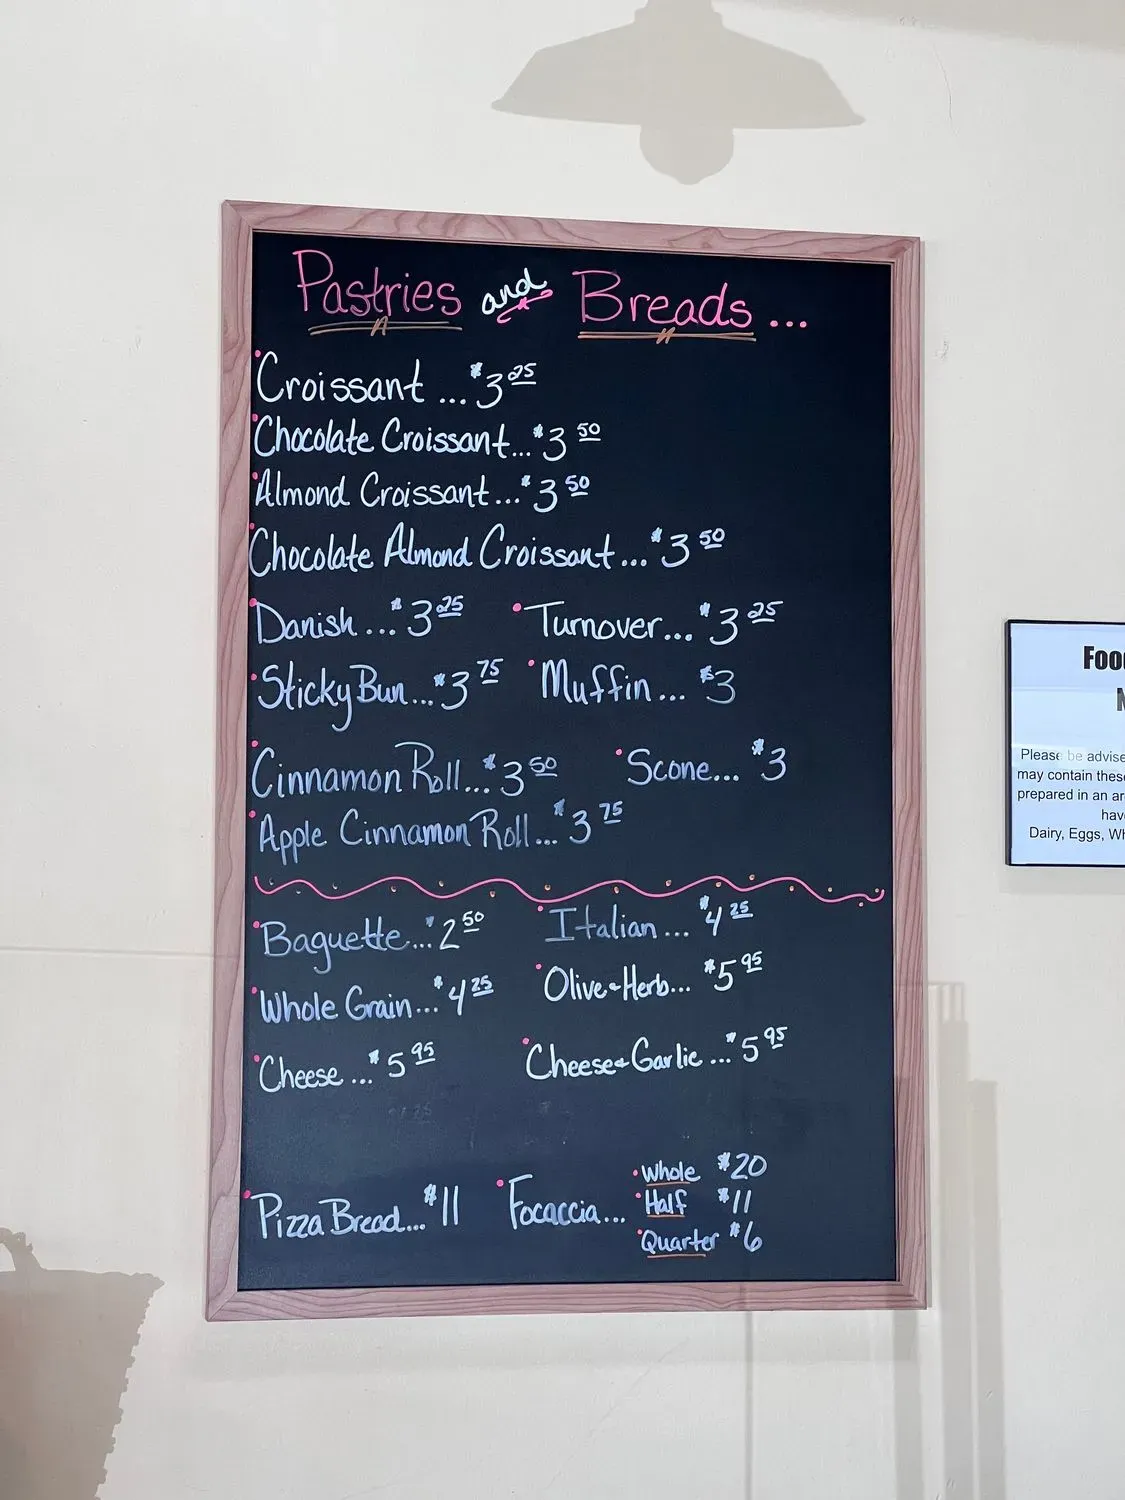 Pastries and Breads...
Croissant ... $3 25
Chocolate Croissant... $3 50
Almond Croissant... $3 50
Chocolate Almond Croissant... $3 50
Danish ... $3 25
Turnover... $3 25
Sticky Bun... $3 75
Muffin... $3
Cinnamon Roll... $3 50
Scone... $3
Apple Cinnamon Roll... $3 75
Baguette... $2 50
Italian ... $4 25
Whole Grain... $4 25
Olive & Herb... $5 95
Cheese ... $5 95
Cheese & Garlic ... $5 95
Pizza Bread... $11
Focaccia...
Whole $20
Half $11
Quarter $6
Please be advise
may contain these
prepared in an ar
hav
Dairy, Eggs, Wh